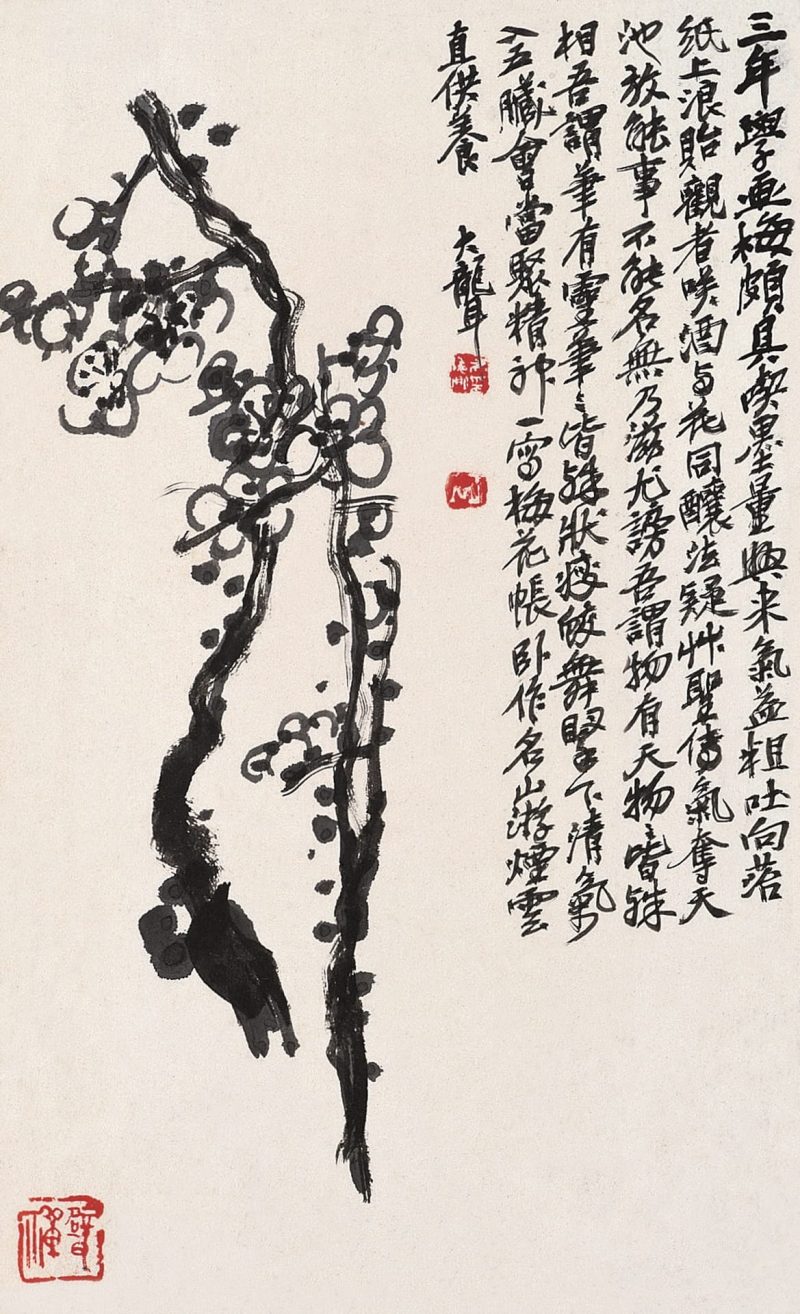 三年學画梅頗具喫墨量興来氣益粗吐向苔
纸上浪貽觀者咲酒与花同釀法疑艸聖傳氣奪天
池放能事不能名無乃滋尤謗吾謂物有天物〻皆殊
相吾謂筆有靈筆〻皆殊狀瘦蛟舞壑下清氣
入五臟會當聚精神一寫梅花帳卧作名山游煙雲
直供養 大聾